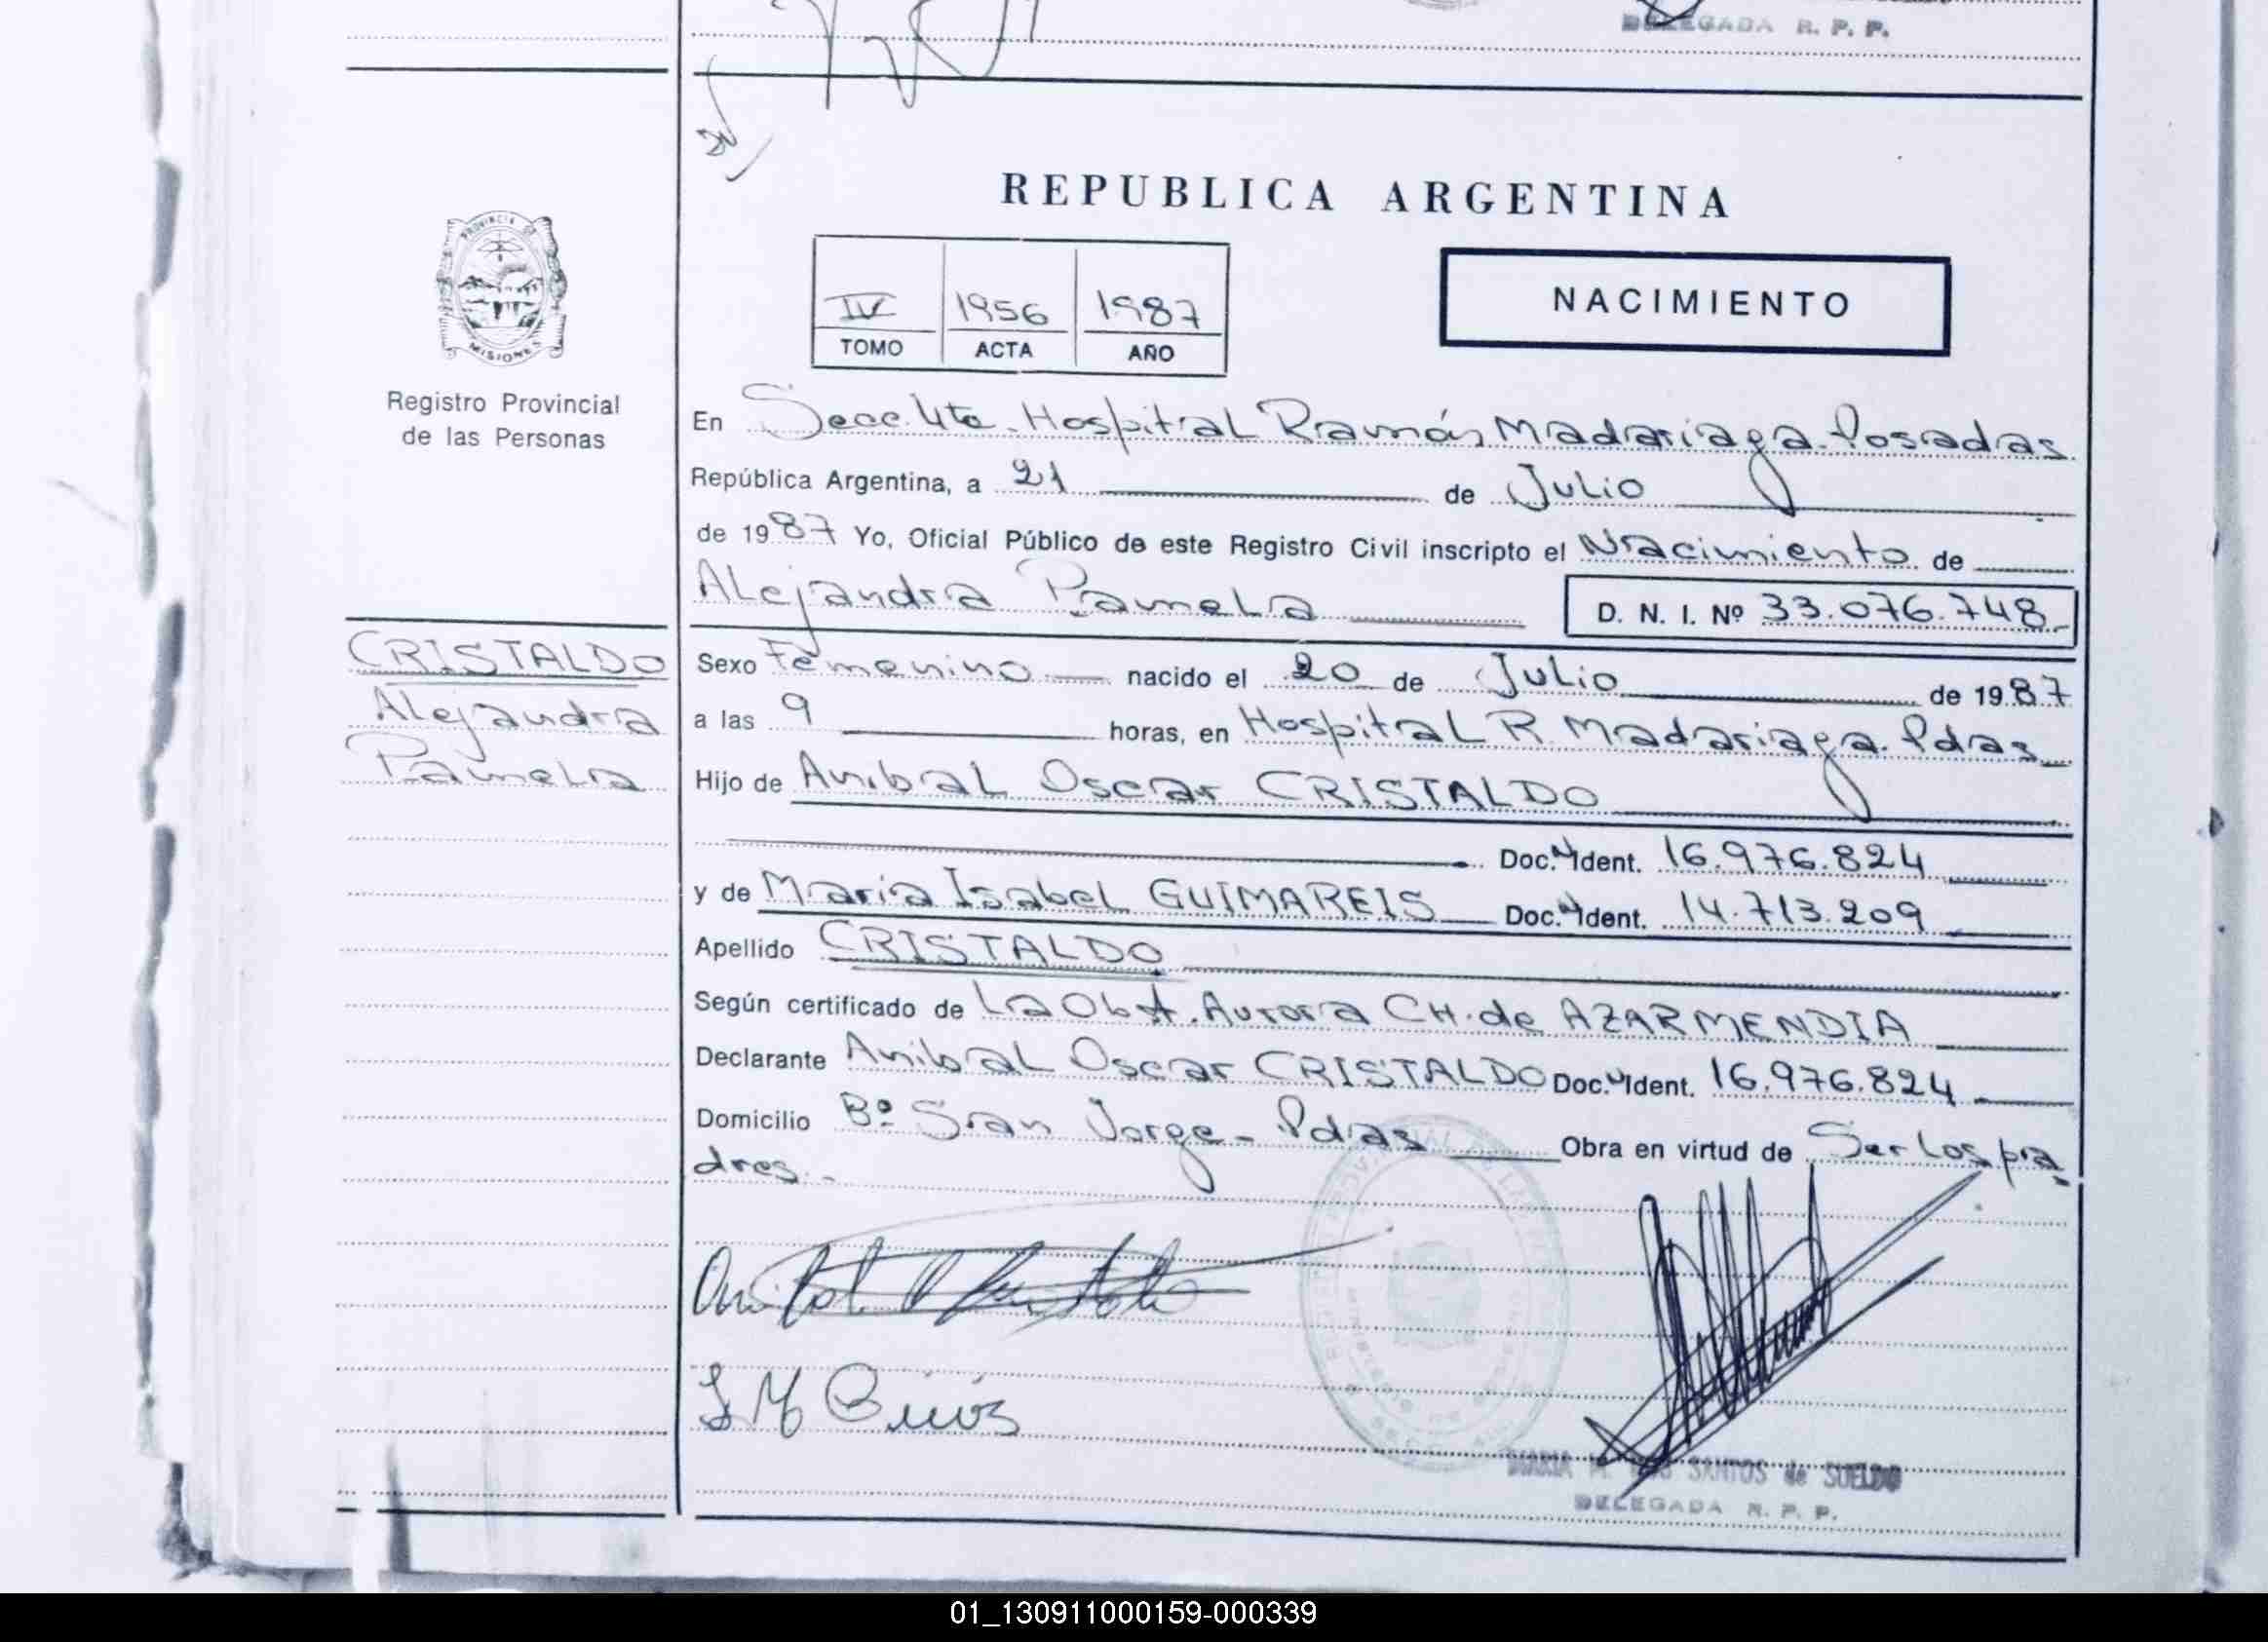 DELEGADA R. P. P.
REPUBLICA ARGENTINA
PROVINCIA DE
MISIONES
Registro Provincial
de las Personas
IV 1956 1987
TOMO ACTA AÑO
NACIMIENTO
En Secc. 4ta. Hospital Ramón Madariaga. Posadas
República Argentina, a 21 de Julio
de 1987 Yo, Oficial Público de este Registro Civil inscripto el Nacimiento de
Alejandra Pamela D. N. I. Nº 33.076.748
CRISTALDO
Alejandra
Pamela
Sexo Femenino nacido el 20 de Julio de 1987
a las 9 horas, en Hospital R Madariaga. Pdas
Hijo de Anibal Oscar CRISTALDO
Doc. Ident. 16.976.824
y de Maria Isabel GUIMAREIS Doc. Ident. 14.713.209
Apellido CRISTALDO
Según certificado de La Obst. Aurora CH. de AZARMENDIA
Declarante Anibal Oscar CRISTALDO Doc. Ident. 16.976.824
Domicilio Bº San Jorge - Pdas Obra en virtud de Ser los pa
dres.-
MARIA M. SANTOS de SUELDO
DELEGADA R. P. P.
01_130911000159-000339